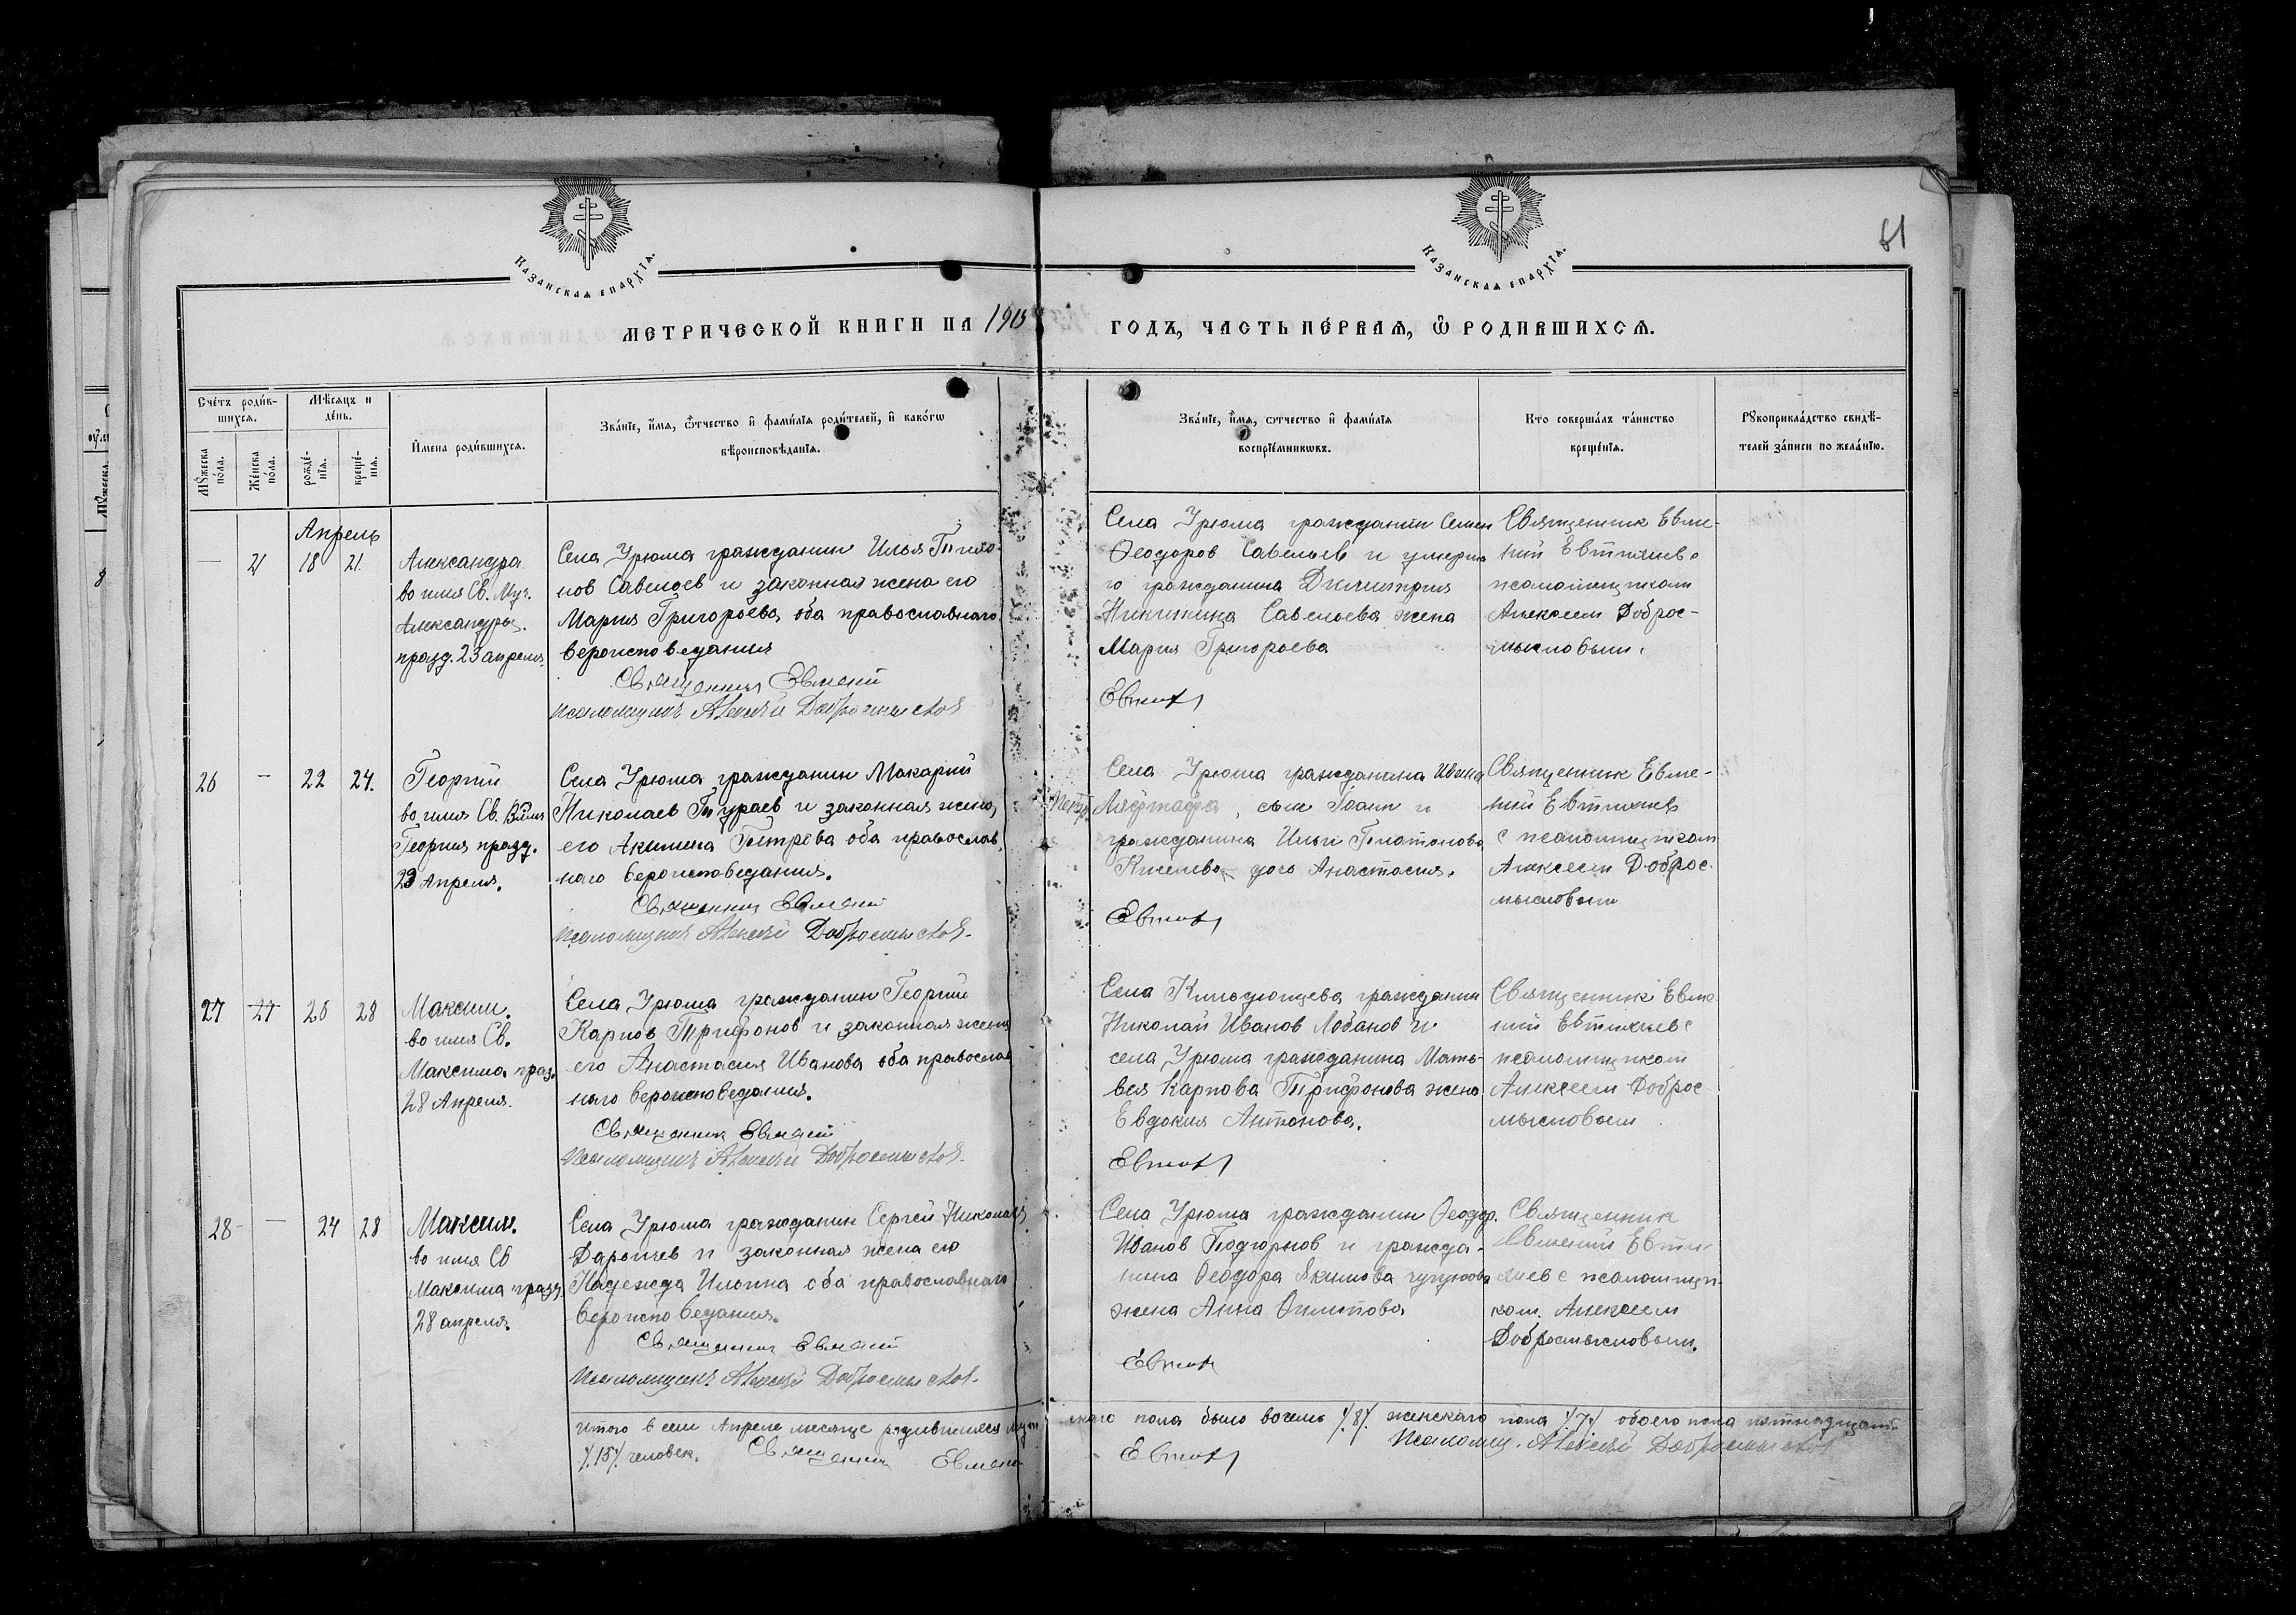 61
Казанская епархїя.
Казанская епархїя.
Метрической книги на 191
годъ, часть пе́рвая, ѿ родившихся.
Сче́тъ роди́в-
шихся.
Мѣ́сяцъ и
де́нь.
Мꙋ́жеска
по́ла.
Же́нска
по́ла.
рожде́-
нїя.
креще́-
нїя.
И҆мена роди́вшихся.
Зва́нїе, и҆́мя, ѻ҆́тчество и҆ фами́лїя роди́телей, и҆ како́гѡ
вѣроисповѣ́данїя.
Зва́нїе, и҆́мя, ѻ҆́тчество и҆ фами́лїя
воспрїе́мникѡвъ.
Кто соверша́лъ та́инство
креще́нїя.
Рꙋкоприкла́дство свидѣ́-
телей за́писи по жела́нїю.
Апрель
— 21 18 21.
Александра
во имя Св. Муч.
Александры.
празд. 23 апреля.
Села Урюма гражданин Илья
Савельев и законная жена его
Мария Григорьева, оба православнаго
вероисповедания
Священник Евмений
псаломщик Алексей Добросмыслов
Села Урюма гражданин Семен
Феодоров Савельев и умерша
го гражданина Димитрия
Никитина Савельева жена
Мария Григорьева
Евтих
Священник Евме-
ний Евтихиев с
псаломщиком
Алексеем Доброс-
мысловым.
26 — 22 24.
Георгий
во имя Св. Влмч
Георгия празд.
23 Апреля.
Села Урюма гражданин Макарий
Николаев Тураев и законная жена
его Акилина Петрова оба православ
наго вероисповедания.
Священник Евмений
псаломщик Алексей Добросмыслов.
Села Урюма гражданина Ивана
Петр. сын Иоанн и
гражданина Ильи Платонова
Киселева дочь Анастасия.
Евтих
Священник Евме-
ний Евтихиев
с псаломщиком
Алексеем Доброс-
мысловым
27 27 26 28
Максим.
во имя Св.
Максима праз.
28 Апреля.
Села Урюма гражданин Георгий
Карпов Трифонов и законная жена
его Анастасия Иванова оба православ
наго вероисповедания.
Священник Евмений
Псаломщик Алексей Добросмыслов.
Села гражданин
Николай Иванов Лобанов и
села Урюма гражданина Мать-
вея Карпова Трифонова жена
Евдокия Антонова.
Евтих
Священник Евме-
ний Евтихиев с
псаломщиком
Алексеем Доброс
мысловым
28 — 24 28
Максим.
во имя Св
Максима празд.
28 апреля.
Села Урюма гражданин Сергей Николаев
Дарьичев и законная жена его
Надежда Ильина оба православнаго
вероисповедания.
Священник Евмений
Псаломщик Алексей Добросмыслов.
Села Урюма гражданин Феодор.
Иванов Подгорнов и гражда-
нина Феодора Якимова
жена Анна
Евтих
Священник
Евмений Евти-
хиев с псаломщи-
ком. Алексеем
Добросмысловым.
Итого в сем Апреле месяце родившихся муж
скаго пола было восемь ⁒8⁒. женскаго пола ⁒7⁒ обоего пола пятнадцать
⁒15⁒ человек. Священник Евмений
Евтих
Псаломщ. Алексей Добросмыслов